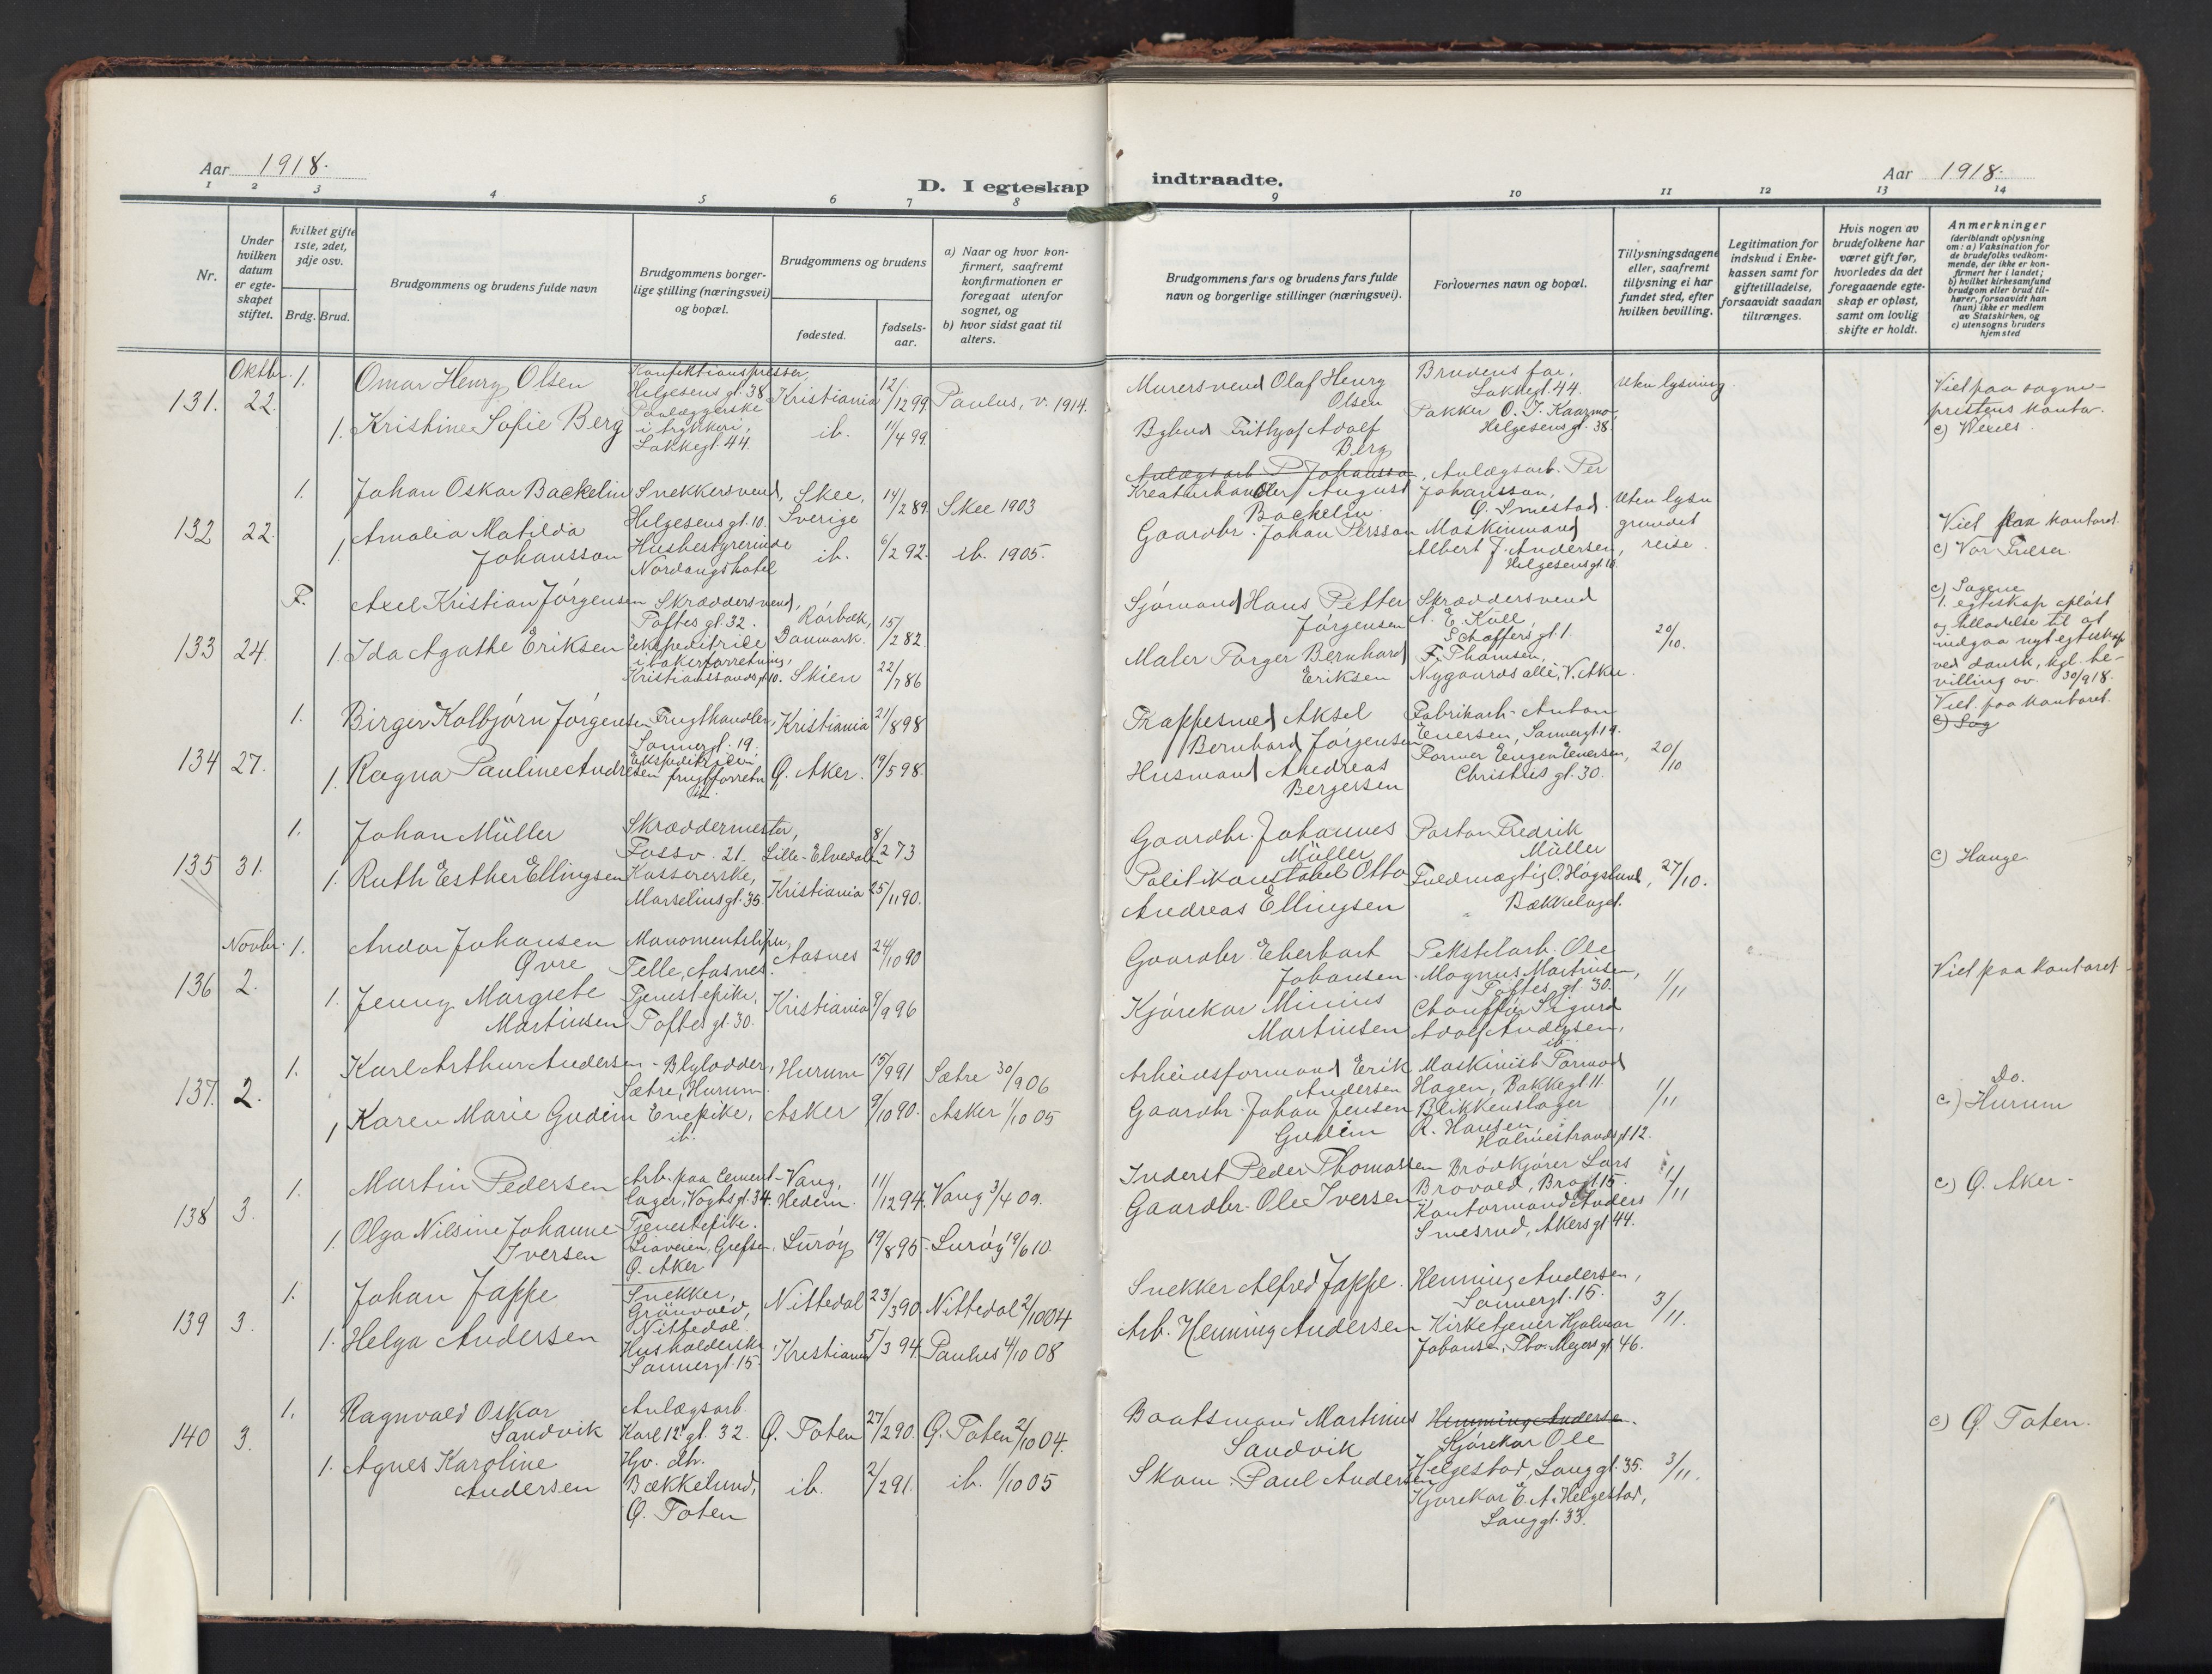 Aar 1918.
D. I egteskap
1 2 3 4 5 6 7 8
Nr.
Under hvilken datum er egteskapet stiftet.
Hvilket gifte 1ste, 2det, 3dje osv.
Brdg. Brud.
Brudgommens og brudens fulde navn
Brudgommens borgerlige stilling (næringsvei) og bopæl.
Brudgommens og brudens
fødested.
fødselsaar.
a) Naar og hvor konfirmert, saafremt konfirmationen er foregaat utenfor sognet, og
b) hvor sidst gaat til alters.
indtraadte.
Aar 1918.
9 10 11 12 13 14
Brudgommens fars og brudens fars fulde navn og borgerlige stillinger (næringsvei).
Forlovernes navn og bopæl.
Tillysningsdagene eller, saafremt tillysning ei har fundet sted, efter hvilken bevilling.
Legitimation for indskud i Enkekassen samt for giftetilladelse, forsaavidt saadan tiltrænges.
Hvis nogen av brudefolkene har været gift før, hvorledes da det foregaaende egteskap er opløst, samt om lovlig skifte er holdt.
Anmerkninger
(deriblandt oplysning om: a) Vaksination for de brudefolks vedkommende, der ikke er konfirmert her i landet;
b) hvilket kirkesamfund brudgom eller brud tilhører, forsaavidt han (hun) ikke er medlem av Statskirken, og
c) utensogns bruders hjemsted
Oktbr.
131. 22. 1. Omar Henry Olsen
Konfektionspresser,
Helgesens gt. 38
Kristiania 12/12 99
Paulus, v. 1914.
Murersvend Olaf Henry
Olsen
Brudens far,
Lakkegt. 44.
Uten lysning
Viet paa sogne-
prestens kontor.
1. Kristine Sofie Berg
Paalæggerske
i trykkeri,
Lakkegt. 44.
ib. 11/4 99.
Bybud Frithjof Adolf
Berg
Pakker O. J. Kaarmo,
Helgesens gt. 38.
c) Wexels.
132 22. 1. Johan Oskar Backelin
Snekkersvend,
Helgesens gt. 10.
Skee,
Sverige
14/2 89. Skee 1903
Anlægsarb. P. Johansson
Kreaturhandler August
Backelin.
Anlægsarb. Per
Johansson,
Ø. Smestad.
Uten lysn
grundet
reise.
Viet paa kontoret.
1. Amalia Matilda
Johansson
Husbestyrerinde
Nordangshotel
ib. 6/2 92. ib. 1905.
Gaardbr. Johan Persson
Maskinmand
Albert J. Andersen,
Helgesens gt. 10.
c) Vor Frelser.
133 24. F. Axel Kristian Jörgensen
Skræddersvend,
Toftes gt. 32.
Rörbæk,
Danmark.
15/2 82.
Sjömand Hans Petter
Jörgensen
Skræddersvend
A. E. Küll
Schaffers gt. 1.
20/10.
c) Sagene
1. egteskap opløst
og tilladelse til at
indgaa nyt egteskap
ved dansk, kgl. be-
villing av 30/9 18.
1. Ida Agathe Eriksen
Ekspeditrice
i bakerforretning,
Kristianssands gt. 10.
Skien 22/7 86
Maler Torger Bernhard
Eriksen
F. Thomsen,
Nygaards allé, V. Aker.
134 27. 1. Birger Kolbjörn Jörgensen
Frugthandler,
Sannergt. 19.
Kristiania 21/8 98
Trappesmed Aksel
Bernhard Jörgensen
Fabrikarb. Anton
Enersen, Sannergt. 19.
20/10
Viet paa kontoret.
c) Sag
1. Ragna Pauline Andresen
Ekspeditrice i
frugtforretn.
ib.
Ø. Aker. 19/5 98.
Husmand Andreas
Bergersen
Former Eugen Enersen,
Christies gt. 30.
135 31. 1. Johan Müller
Skræddermester,
Fossv. 21.
Lille-Elvedalen
8/2 73
Gaardbr. Johannes
Müller
Pastor Fredrik
Müller
27/10.
c) Hauge
1. Ruth Esther Ellingsen
Kassererske,
Marselius gt. 35.
Kristiania 25/11 90.
Politikonstabel Otto
Andreas Ellingsen
Fuldmægtig O. Högslund,
Bækkelaget.
Novbr.
136 2. 1. Andor Johansen
Övre
Telle, Aasnes.
Aasnes 24/10 90
Gaardbr. Eberhart
Johansen
Tekstilarb. Ole
Magnus Martinsen,
Toftes gt. 30.
1/11
Viet paa kontoret
1. Jenny Margrete
Martinsen
Tjenestepike,
Toftes gt. 30.
Kristiania 9/9 96
Kjörekar Minius
Martinsen
Chauffør Sigurd
Adolf Andersen,
ib.
137. 2. 1. Karl Arthur Andersen
Blylodder,
Sætre, Hurum.
Hurum 15/9 91 Sætre 30/9 06
Arbeidsformand Erik
Andersen
Maskinist Tormod
Hagen, Bakkegt. 11.
1/11
Do.
1 Karen Marie Gudim
Enepike,
ib.
Asker 9/10 90. Asker 1/10 05
Gaardbr. Johan Jensen
Gudim
Blikkenslager
R. Hansen,
Holmestrandsgt. 12.
c) Hurum
138 3. 1. Martin Pedersen
Arb. paa Cement-
lager, Vogts gt. 34
Vang,
Hedem.
11/12 94. Vang 3/4 09.
Inderst Peder Thomassen
Brödkjører Lars
Brovold, Brogt. 15.
1/11
c) Ø. Aker.
1. Olga Nilsine Johanne
Iversen
Tjenestepike.
Liaveien, Grefsen,
Ø. Aker
Luröy 19/8 95. Luröy 19/6 10.
Gaardbr. Ole Iversen
Kontormand Anders
Smesrud, Akersgt. 44.
139 3. 1. Johan Jappe
Snekker,
Grönvold,
Nittedal
Nittedal 23/3 90. Nittedal 2/10 04
Snekker Alfred Jappe.
Henning Andersen,
Sannergt. 15.
3/11.
1. Helga Andersen
Husholderske
Sannergt. 15
Kristiania 5/3 94. Paulus 4/10 08
Arb. Henning Andersen
Kirketjener Hjalmar
Johansen, Tho. Meyers gt. 46.
140 3. 1. Ragnvald Oskar
Sandvik
Anlægsarb.
Karl 12's gt. 32.
Ø. Toten 27/2 90. Ø. Toten 2/10 04.
Baatsmand Martinius
Sandvik
Henning Andersen.
Kjörekar Ole
Helgestad, Langgt. 35.
3/11.
c) Ø. Toten.
1. Agnes Karoline
Andersen
Hjv. dtr.
Bækkelund,
Ø. Toten
ib. 2/2 91. ib. 1/10 05
Skom. Paul Andersen
Kjørekar E. A. Helgestad,
Langgt. 33.